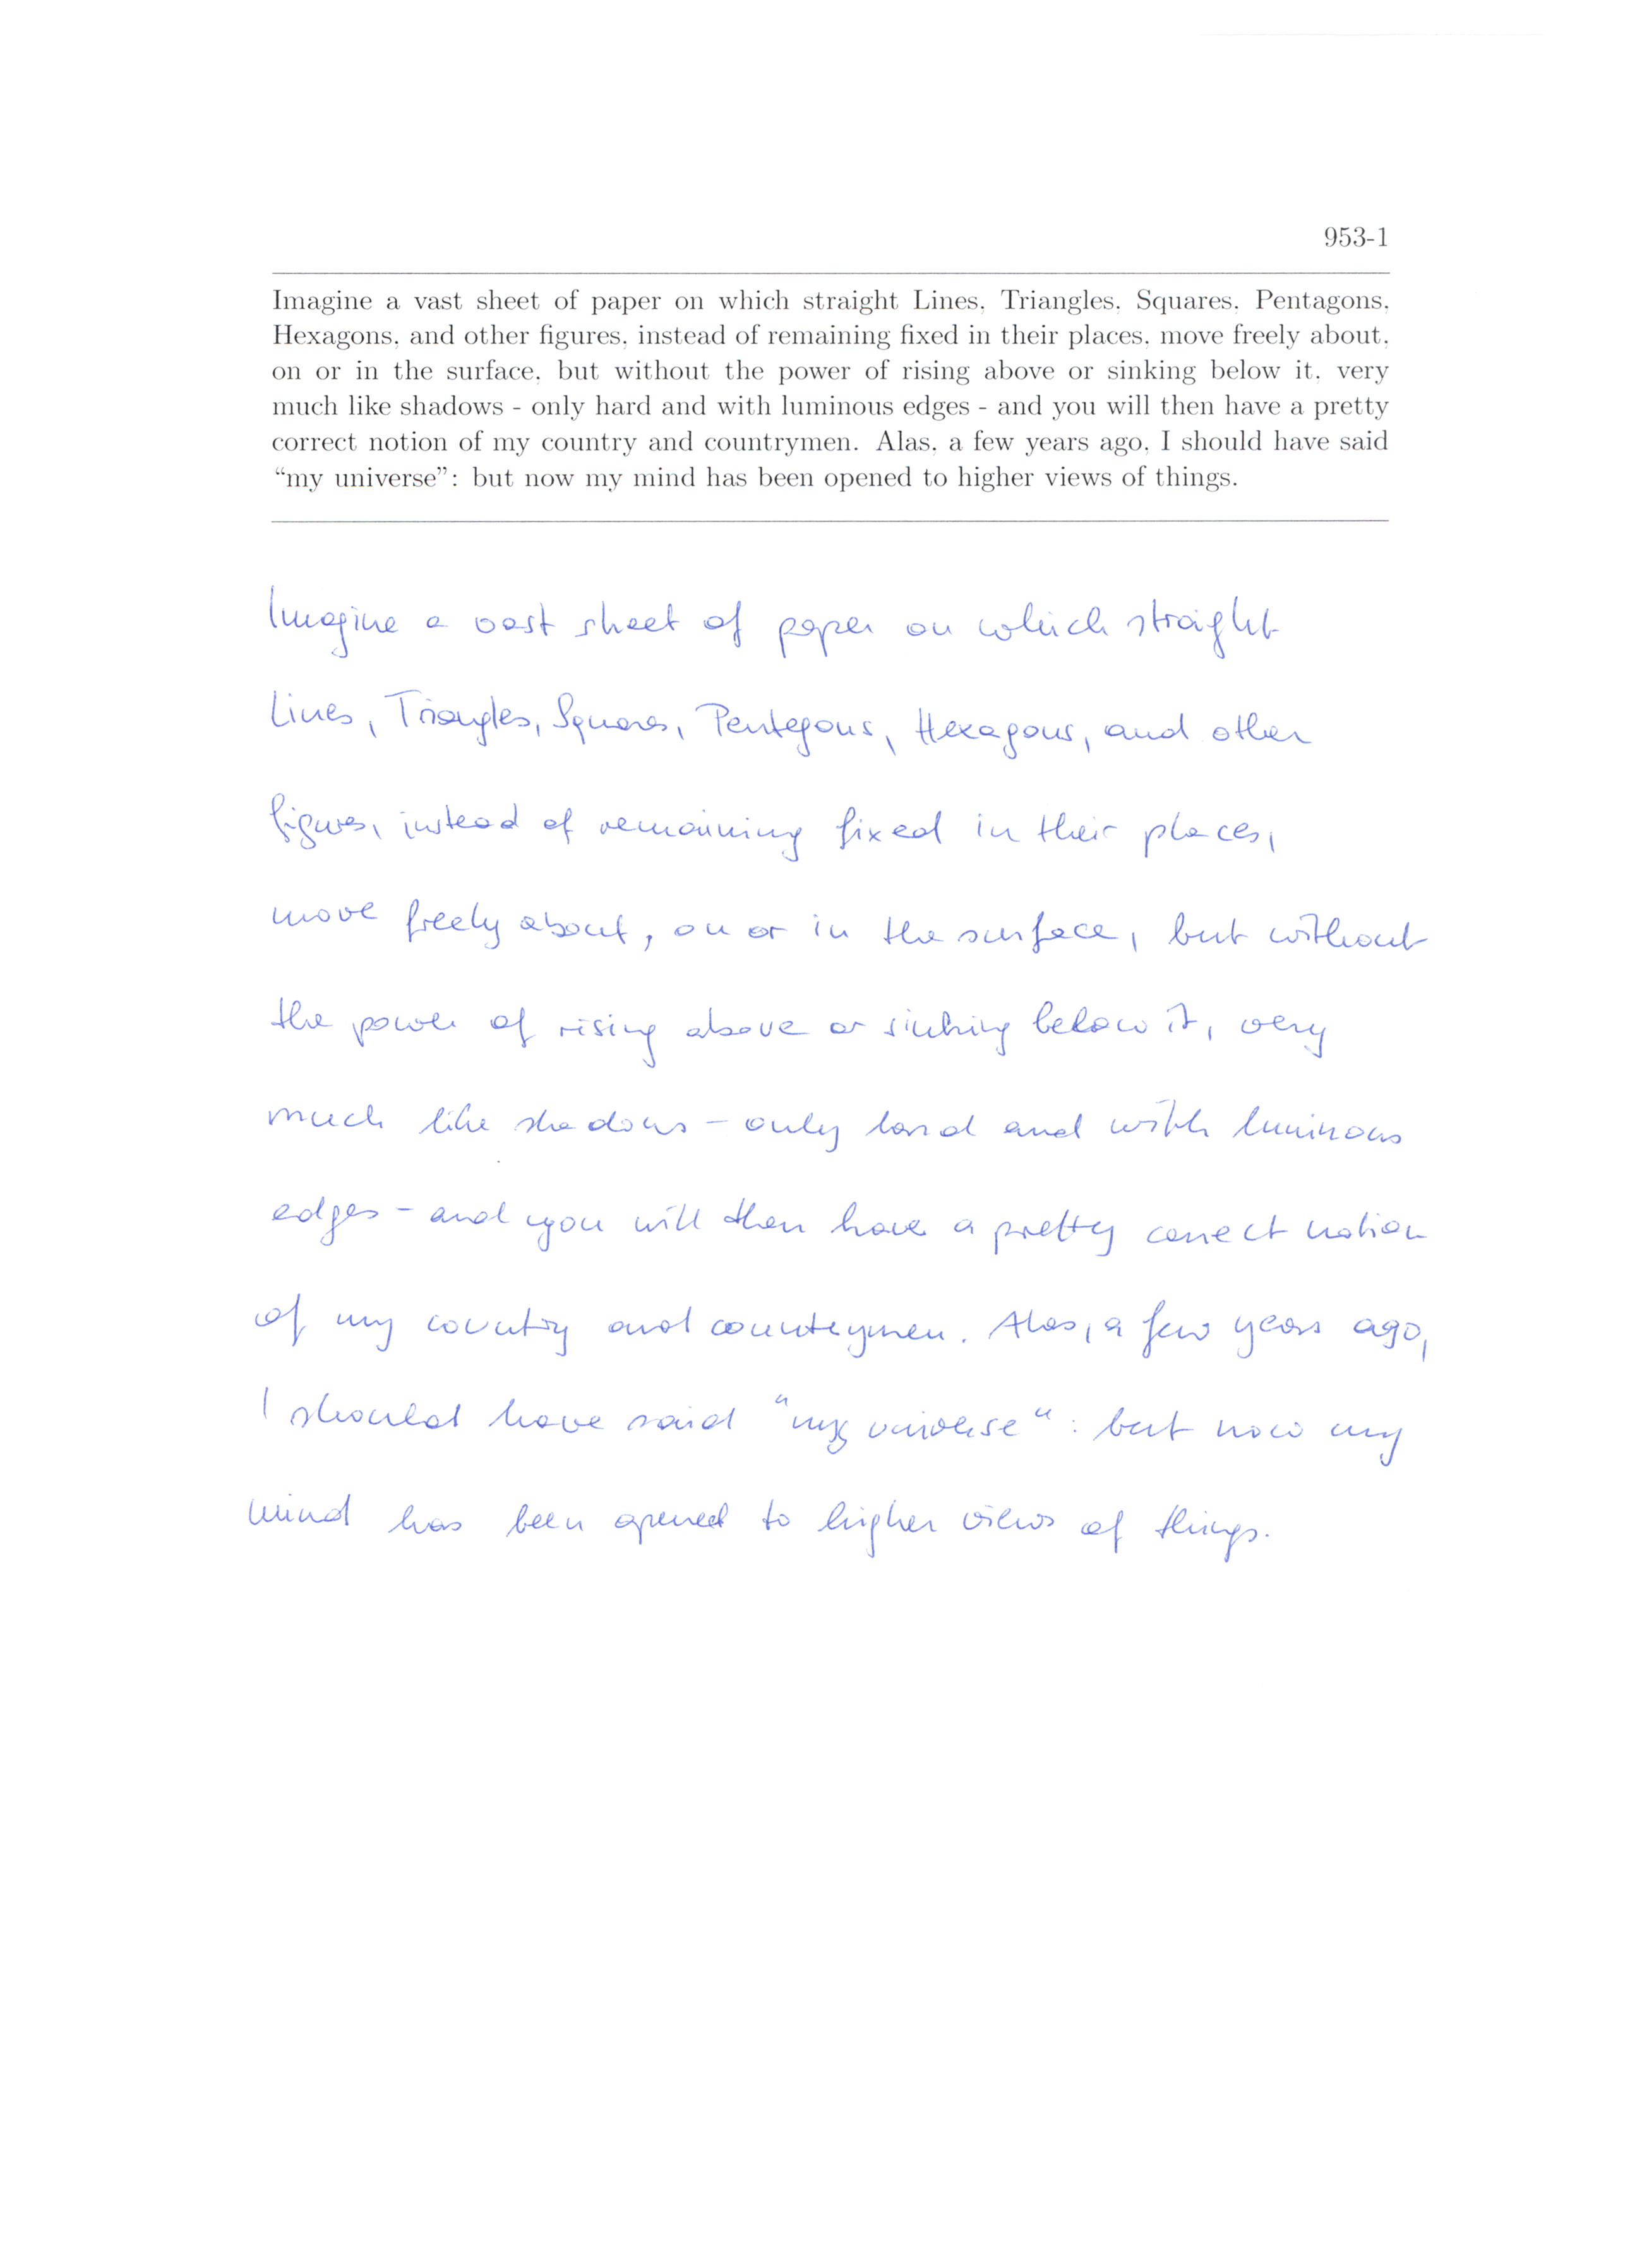 953-1
Imagine a vast sheet of paper on which straight Lines, Triangles, Squares, Pentagons,
Hexagons, and other figures, instead of remaining fixed in their places, move freely about,
on or in the surface, but without the power of rising above or sinking below it, very
much like shadows - only hard and with luminous edges - and you will then have a pretty
correct notion of my country and countrymen. Alas, a few years ago, I should have said
“my universe”: but now my mind has been opened to higher views of things.
Imagine a vast sheet of paper on which straight
Lines, Triangles, Squares, Pentagons, Hexagons, and other
figures, instead of remaining fixed in their places,
move freely about, on or in the surface, but without
the power of rising above or sinking below it, very
much like shadows - only hard and with luminous
edges - and you will then have a pretty correct notion
of my country and countrymen. Alas, a few years ago,
I should have said "my universe": but now my
mind has been opened to higher views of things.